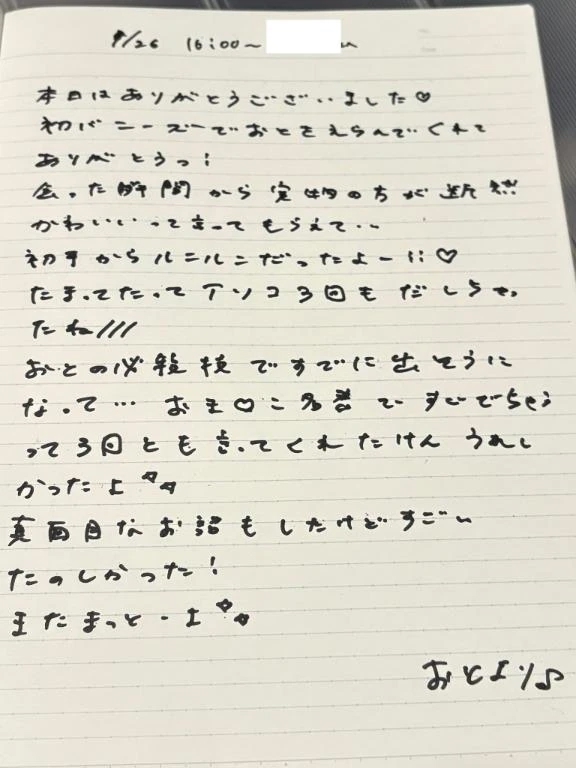 9/26 16:00~
本日はありがとうございました♡
初バニーズーでおとをえらんでくれて
ありがとうっ!
会った瞬間から実物の方が断然
かわいいって言ってもらえて…
初手からルンルンだったよー!!♡
たまってたってアソコ3回もだしちゃっ
たね///
おとの必殺技ですでに出そうに
なって… お王♡こ名器ですぐでちゃう
って3回とも言ってくれたけん うれし
かったよ
真面目なお話もしたけどすごい
たのしかった!
またまっと-よ
おとより♪